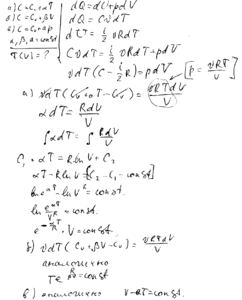 а) C = Cᵥ + αT
б) C = Cᵥ + βV
в) C = Cᵥ + ap
α, β, a = const
T(V) = ?
dQ = dU + pdV
dQ = CνdT
dU = i/2 νRdT
CνdT = i/2 νRdT + pdV
νdT(C - i/2 R) = pdV
[p = νRT/V]
а) νdT(Cᵥ + αT - Cᵥ) = νRTdV/V
αdT = RdV/V
∫αdT = ∫ RdV/V
C₁ + αT = R ln V + C₂
αT - R ln V = [C₂ - C₁ = const]
ln e^αT - ln V^R = const.
ln e^αT/V^R = const.
V = const.
б) νdT(Cᵥ + βV - Cᵥ) = νRTdV/V
аналогично
= const
в) аналогично V - aT = const.